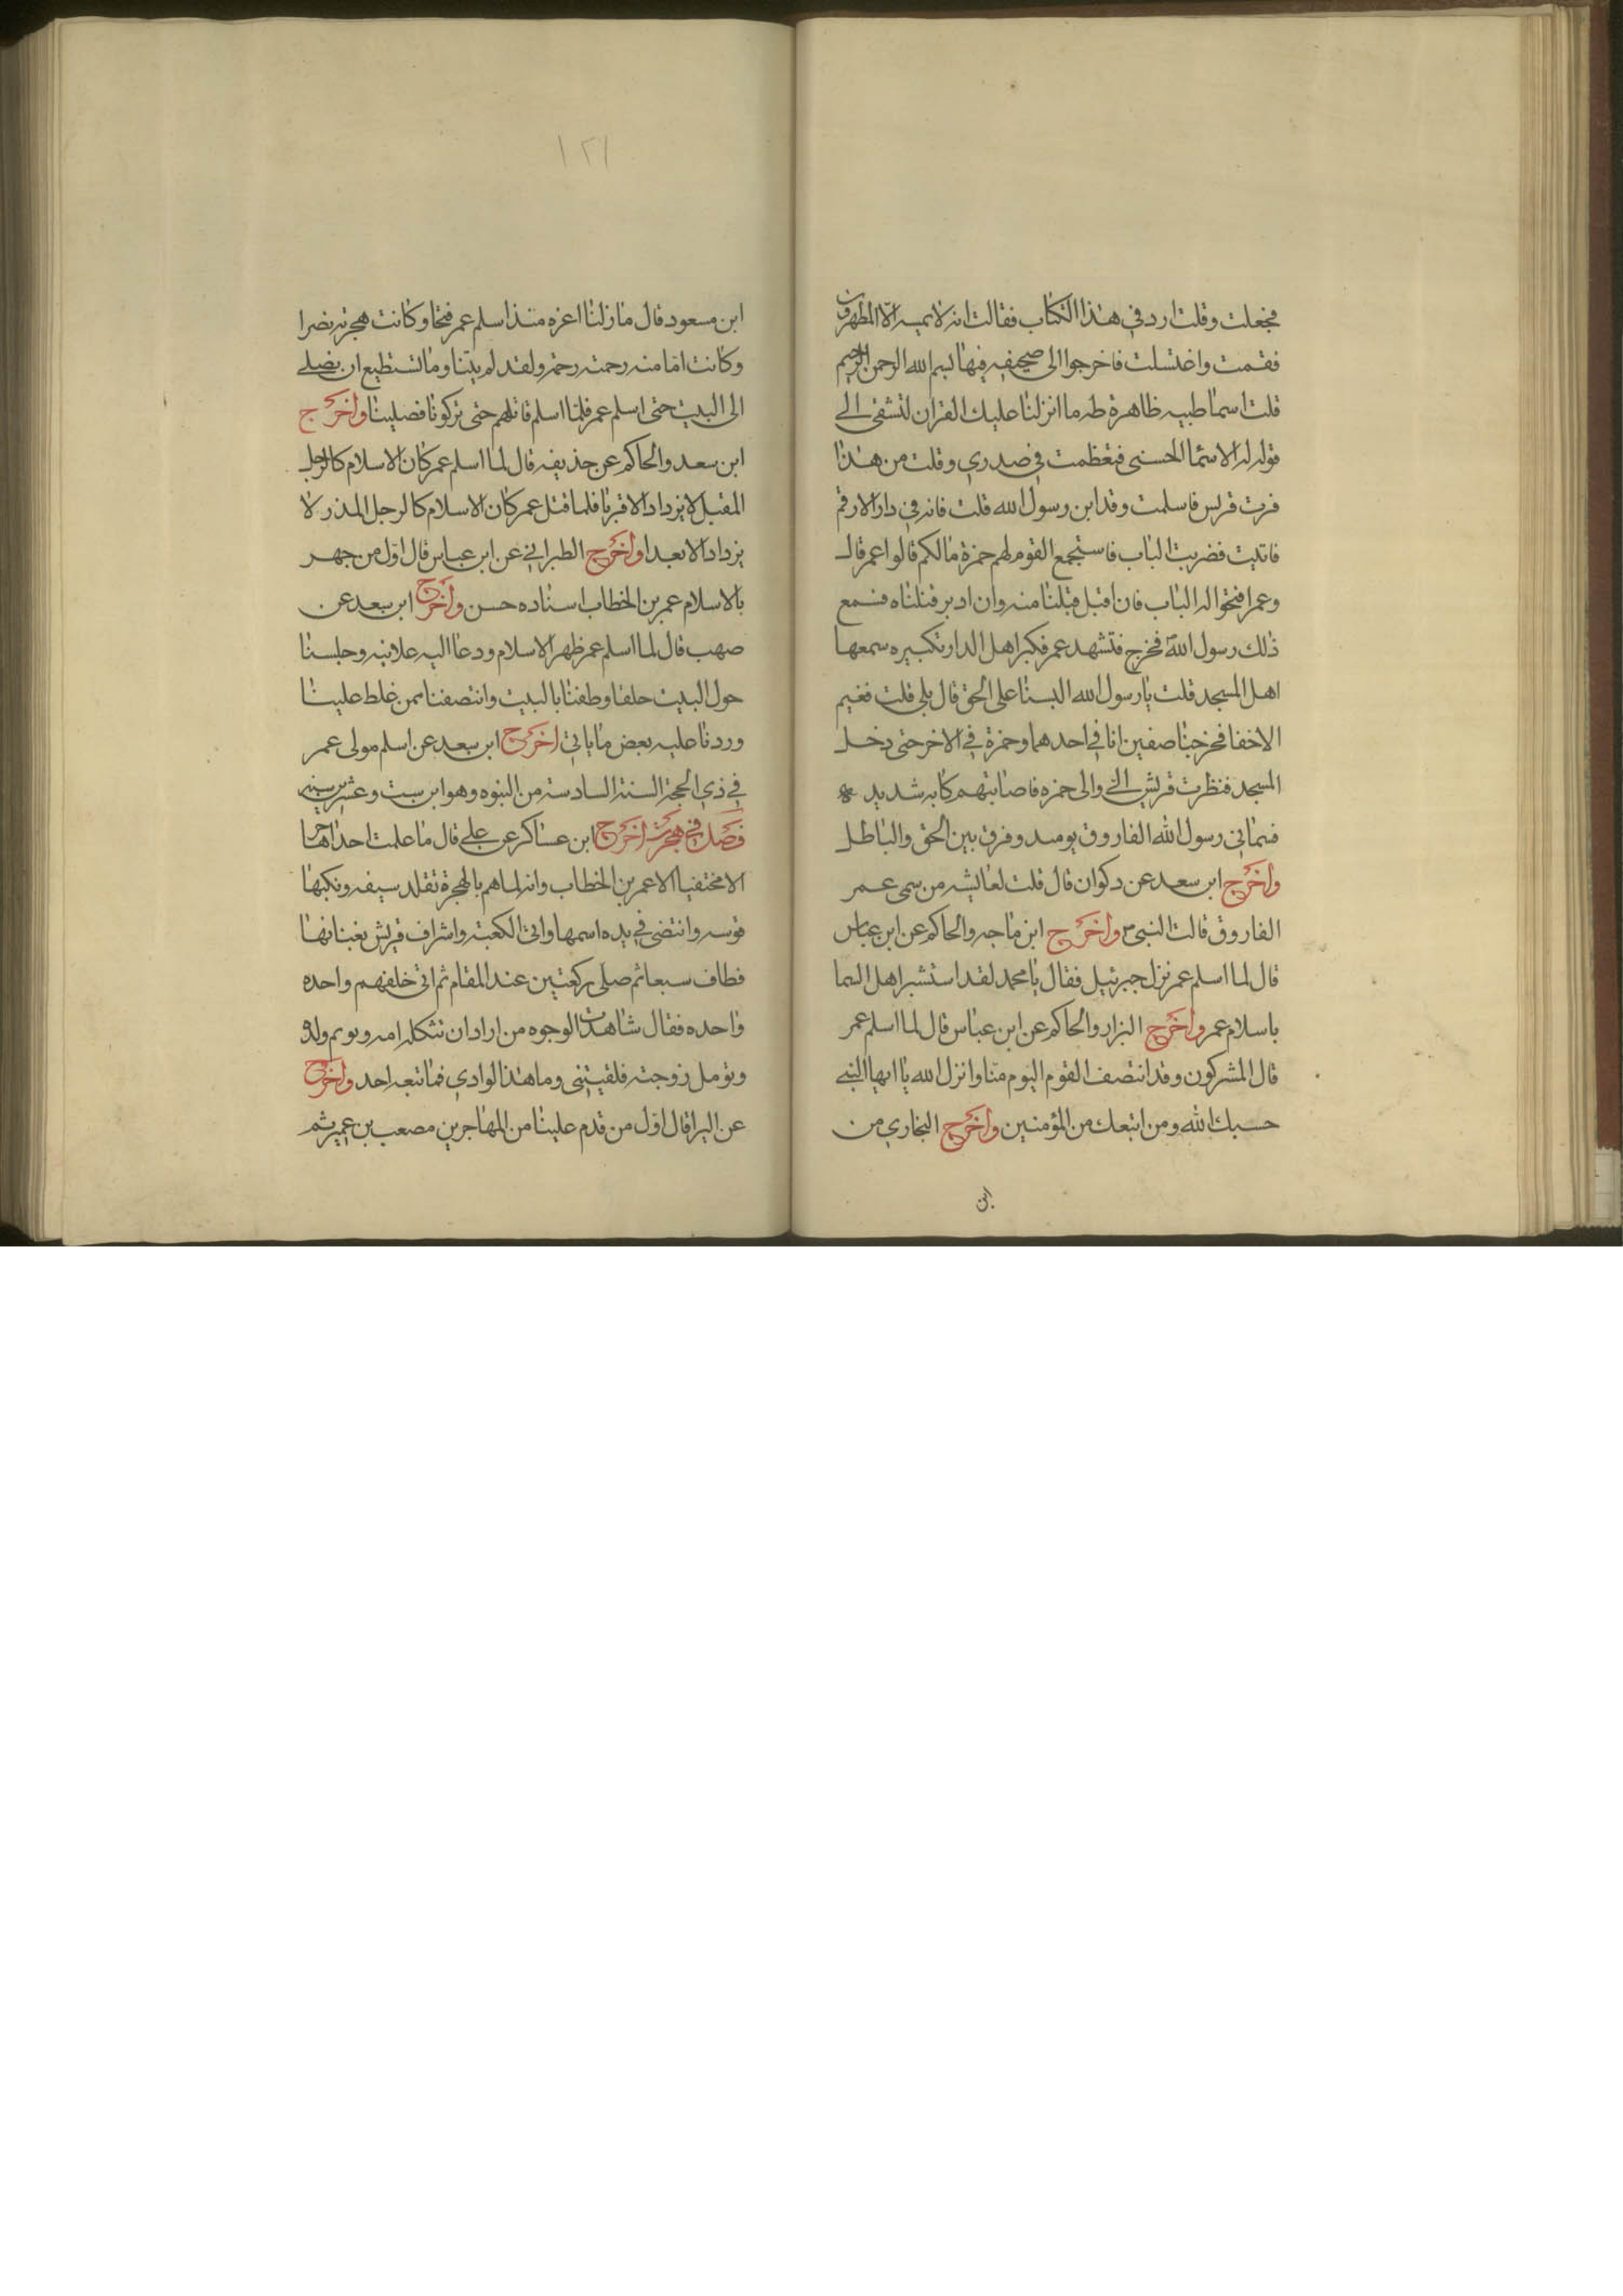 فجعلت وقلت ارد في هذا الكتاب فقالت انه لا يمسه الا المطهرون
فقمت واغتسلت فاخرجوا الى صحيفه فيها بسم الله الرحمن الرحيم
قلت اسما طيبه طاهرة طه ما انزلنا عليك القران لتشقى الى
قوله له الاسما الحسنى فتعظمت في صدري وقلت من هذا
فرت قريس فاسلمت وقد ابن رسول الله قلت فانه في دار الارقم
فاتيت فضربت الباب فاستجمع القوم لهم حمزة مالكم قالوا عمر قال
وعمر افتحوا له الباب فان اقبل قبلنا منه وان ادبر قتلناه فسمع
ذلك رسول الله فخرج فتشهد عمر فكبر اهل الدار تكبيره سمعها
اهل المسجد قلت يا رسول الله السنا على الحق قال بلى قلت ففيم
الاخفا فخرجنا صفين انا في احدهما وحمزة في الاخر حتى دخل
المسجد فنظرت قريش الي والى حمزه فاصابتهم كابه شديد
فسماني رسول الله الفاروق يومىد وفرق بين الحق والباطل
واخرج ابن سعد عن دكوان قال قلت لعايشه من سمى عمر
الفاروق قالت النبي واخرج ابن ماجه والحاكم عن ابن عباس
قال لما اسلم عمر نزل جبرئيل فقال يا محمد لقد استشبر اهل السما
باسلام عمر واخرج البزار والحاكم عن ابن عباس قال لما اسلم عمر
قال المشركون وقد انتصف القوم اليوم منا وانزل الله يا ايها النبي
حسبك الله ومن اتبعك من المؤمنين واخرج البخاري من
ابن
١٢١
ابن مسعود قال ما زلنا اعزه منذ اسلم عمر فتحا وكانت هجرته نصرا
وكانت امامته رحمته رحمه ولقد لم يتنا وما نستطيع ان نصلي
الى البيت حتى اسلم عمر فلما اسلم قاتلهم حتى تركونا فصلينا واخرج
ابن سعد والحاكم عن حذيفه قال لما اسلم عمر كان الاسلام كالرجل
المقبل لا يزداد الا قربا فلما قتل عمر كان الاسلام كالرجل المدر لا
يزداد الا بعدا واخرج الطبراني عن ابن عباس قال اول من جهر
بالاسلام عمر بن الخطاب اسناده حسن واخرج ابن سعد عن
صهب قال لما اسلم عمر ظهر الاسلام ودعا اليه علانيه وجلسنا
حول البيت حلقا وطفنا بالبيت وانتصفنا ممن غلط علينا
وردنا عليه بعض ما ياتي اخرج ابن سعد عن اسلم مولى عمر
في ذي الحجة السنة السادسة من النبوه وهو ابن ست وعشرين سنه
فصل في هجرته اخرج ابن عساكر عن علي قال ما علمت احدا هاجر
الا مختفيا الا عمر بن الخطاب وانه لما هم بالهجرة تقلد سيفه وتكبها
قوسه وانتضى في يده اسمها واتى الكعبه واشراف قريش بفنائها
فطاف سبعا ثم صلى ركعتين عند المقام ثم اتى خلفهم واحده
واحده فقال شاهت الوجوه من اراد ان تثكله امه ويوتم ولده
ويومل زوجته فليقيني وما هذا الوادي فما تبعه احد واخرج
عن البرا قال اول من قدم علينا من المهاجرين مصعب بن عمير ثم